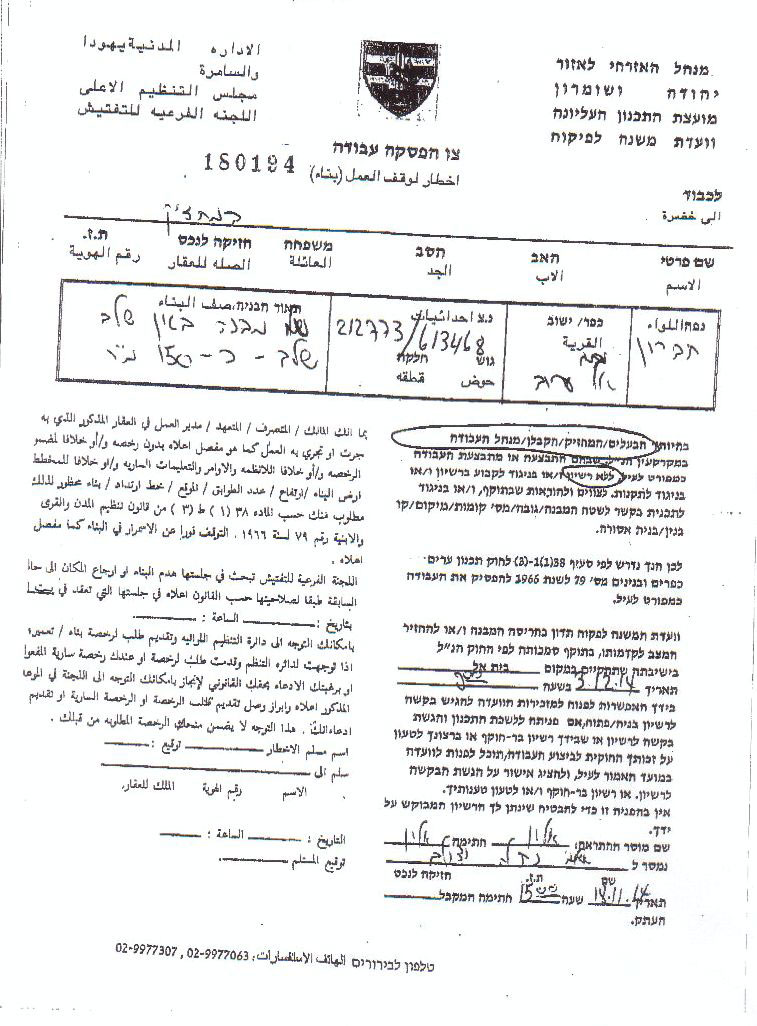 מנהל האזרחי לאזור
יהודה ושומרון
מועצת התכנון העליונה
וועדת משנה לפיקוח
الاداره المدنية يهودا
والسامرة
مجلس التنظيم الاعلى
اللجنه الفرعيه للتفتيش
צו הפסקה עבודה
180194
اخطار لوقف العمل (بناء)
לכבוד
الى حضرة
שם פרטי האב הסב משפחה חזיקה לנכס ת.ז.
الاسم الاب الجد العائلة الصله للعقار رقم الهوية
נפה/اللواء
חברון
כפר/ ישוב
القرية
נ.צ احداثيات
212773/613468
גוש חלקה
حوض قطقه
תאור הבניה/صنف البناء
מבנה באין שלב
שלב - כ-150 מ"ר
בהיותך הבעלים/המחזיק/הקבלן/מנהל העבודה
במקרקעין הנ"ל, שבהם התבצעה או מתבצעת העבודה
כמפורט לעיל, ללא רשיון ו/או בניגוד לקבוע ברשיון ו/או
בניגוד לתקנות, לצווים ולהוראות שבתוקף, ו/או בניגוד
לתכנית בקשר לשטח המבנה/גובה/מסי קומות/מיקום/קו
בנין/בניה אסורה.
לכן הנך נדרש לפי סעיף 38(1)-(3) לחוק תכנון ערים
כפרים ובנינים מס' 79 לשנת 1966 להפסיק את העבודה
כמפורט לעיל.
וועדת המשנה לפקוח תדון בהריסה המבנה ו/או להחזיר
המצב לקדמותו, בתוקף סמכותה לפי החוק הנ"ל
בישיבתה שתתקיים במקום בית אל
תאריך 3.12.14 בשעה
בידך האפשרות לפנות למזכירות הוועדה להגיש בקשה
לרשיון בניה/פתוח, אם פניתה ללשכת התכנון והגשת
בקשה לרשיון או שבידך רשיון בר-חוקף או ברצונך לטעון
על זכותך החוקית לביצוע העבודה, תוכל לפנות לוועדה
במועד האמור לעיל, ולהציג אישור על הגשת הבקשה
לרשיון. או רשיון בר-חוקף ו/או לטעון טענותיך.
אין בהפניה זו כדי להבטיח שינתן לך הרשיון המבוקש על
ידך.
שם מוסר ההתראה, אלון חתימה אלון
נמסר ל
שם ת.ז. חזיקה לנכס
תאריך 18.11.14 שעה 15 חתימה המקבל
העתק.
بما انك المالك / المتصرف / المتعهد / مدير العمل في العقار المذكور الذي به
جرت او تجري به العمل كما هو مفصل اعلاه بدون رخصه و/أو خلافا لمضمون
الرخصه و/أو خلافا للانظمه والاوامر والتعليمات الساريه و/او خلافا للمخطط
ارض البناء /ارتفاع / عدد الطوابق / الموقع / خط ارتداد / بناء محظور لذلك
مطلوب منك حسب الماده ٣٨ (١) ط (٣) من قانون تنظيم المدن والقرى
والابنية رقم ٧٩ لسنة ١٩٦٦ . التوقف فورا عن الاستمرار في البناء كما مفصل
اعلاه .
اللجنة الفرعية للتفتيش تبحث في جلستها هدم البناء او ارجاع المكان الى حالته
السابقة طبقا لصلاحيتها حسب القانون اعلاه في جلستها التي تعقد في
بتاريخ : الساعة :
بامكانك التوجه الى دائرة التنظيم اللوائيه وتقديم طلب لرخصة بناء / تعمير؛
اذا توجهت لدائره التنظم وقدمت طلب لرخصة او عندك رخصة سارية المفعول
او برغبتك الادعاء بحقك القانوني لإنجاز بامكانك التوجه الى اللجنة في الموعد
المذكور اعلاه وابراز وصل تقديم الطلب الرخصة او الرخصة السارية او تقديم
ادعاءاتك . هذا التوجه لا يضمن منحك الرخصة المطلوبه من قبلك .
اسم مسلم الاخطار توقيع :
سلم الى
الاسم رقم الهوية المالك للعقار.
التاريخ : الساعة :
توقيع المستلم
טלפון לבירורים الهاتف الاستفسارات: 02-9977063 , 02-9977307